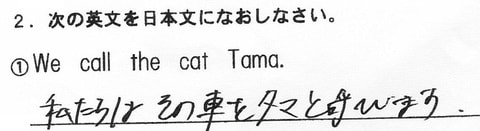 2．次の英文を日本文になおしなさい。
①We call the cat Tama.
私たちは その車をタマと呼びます．